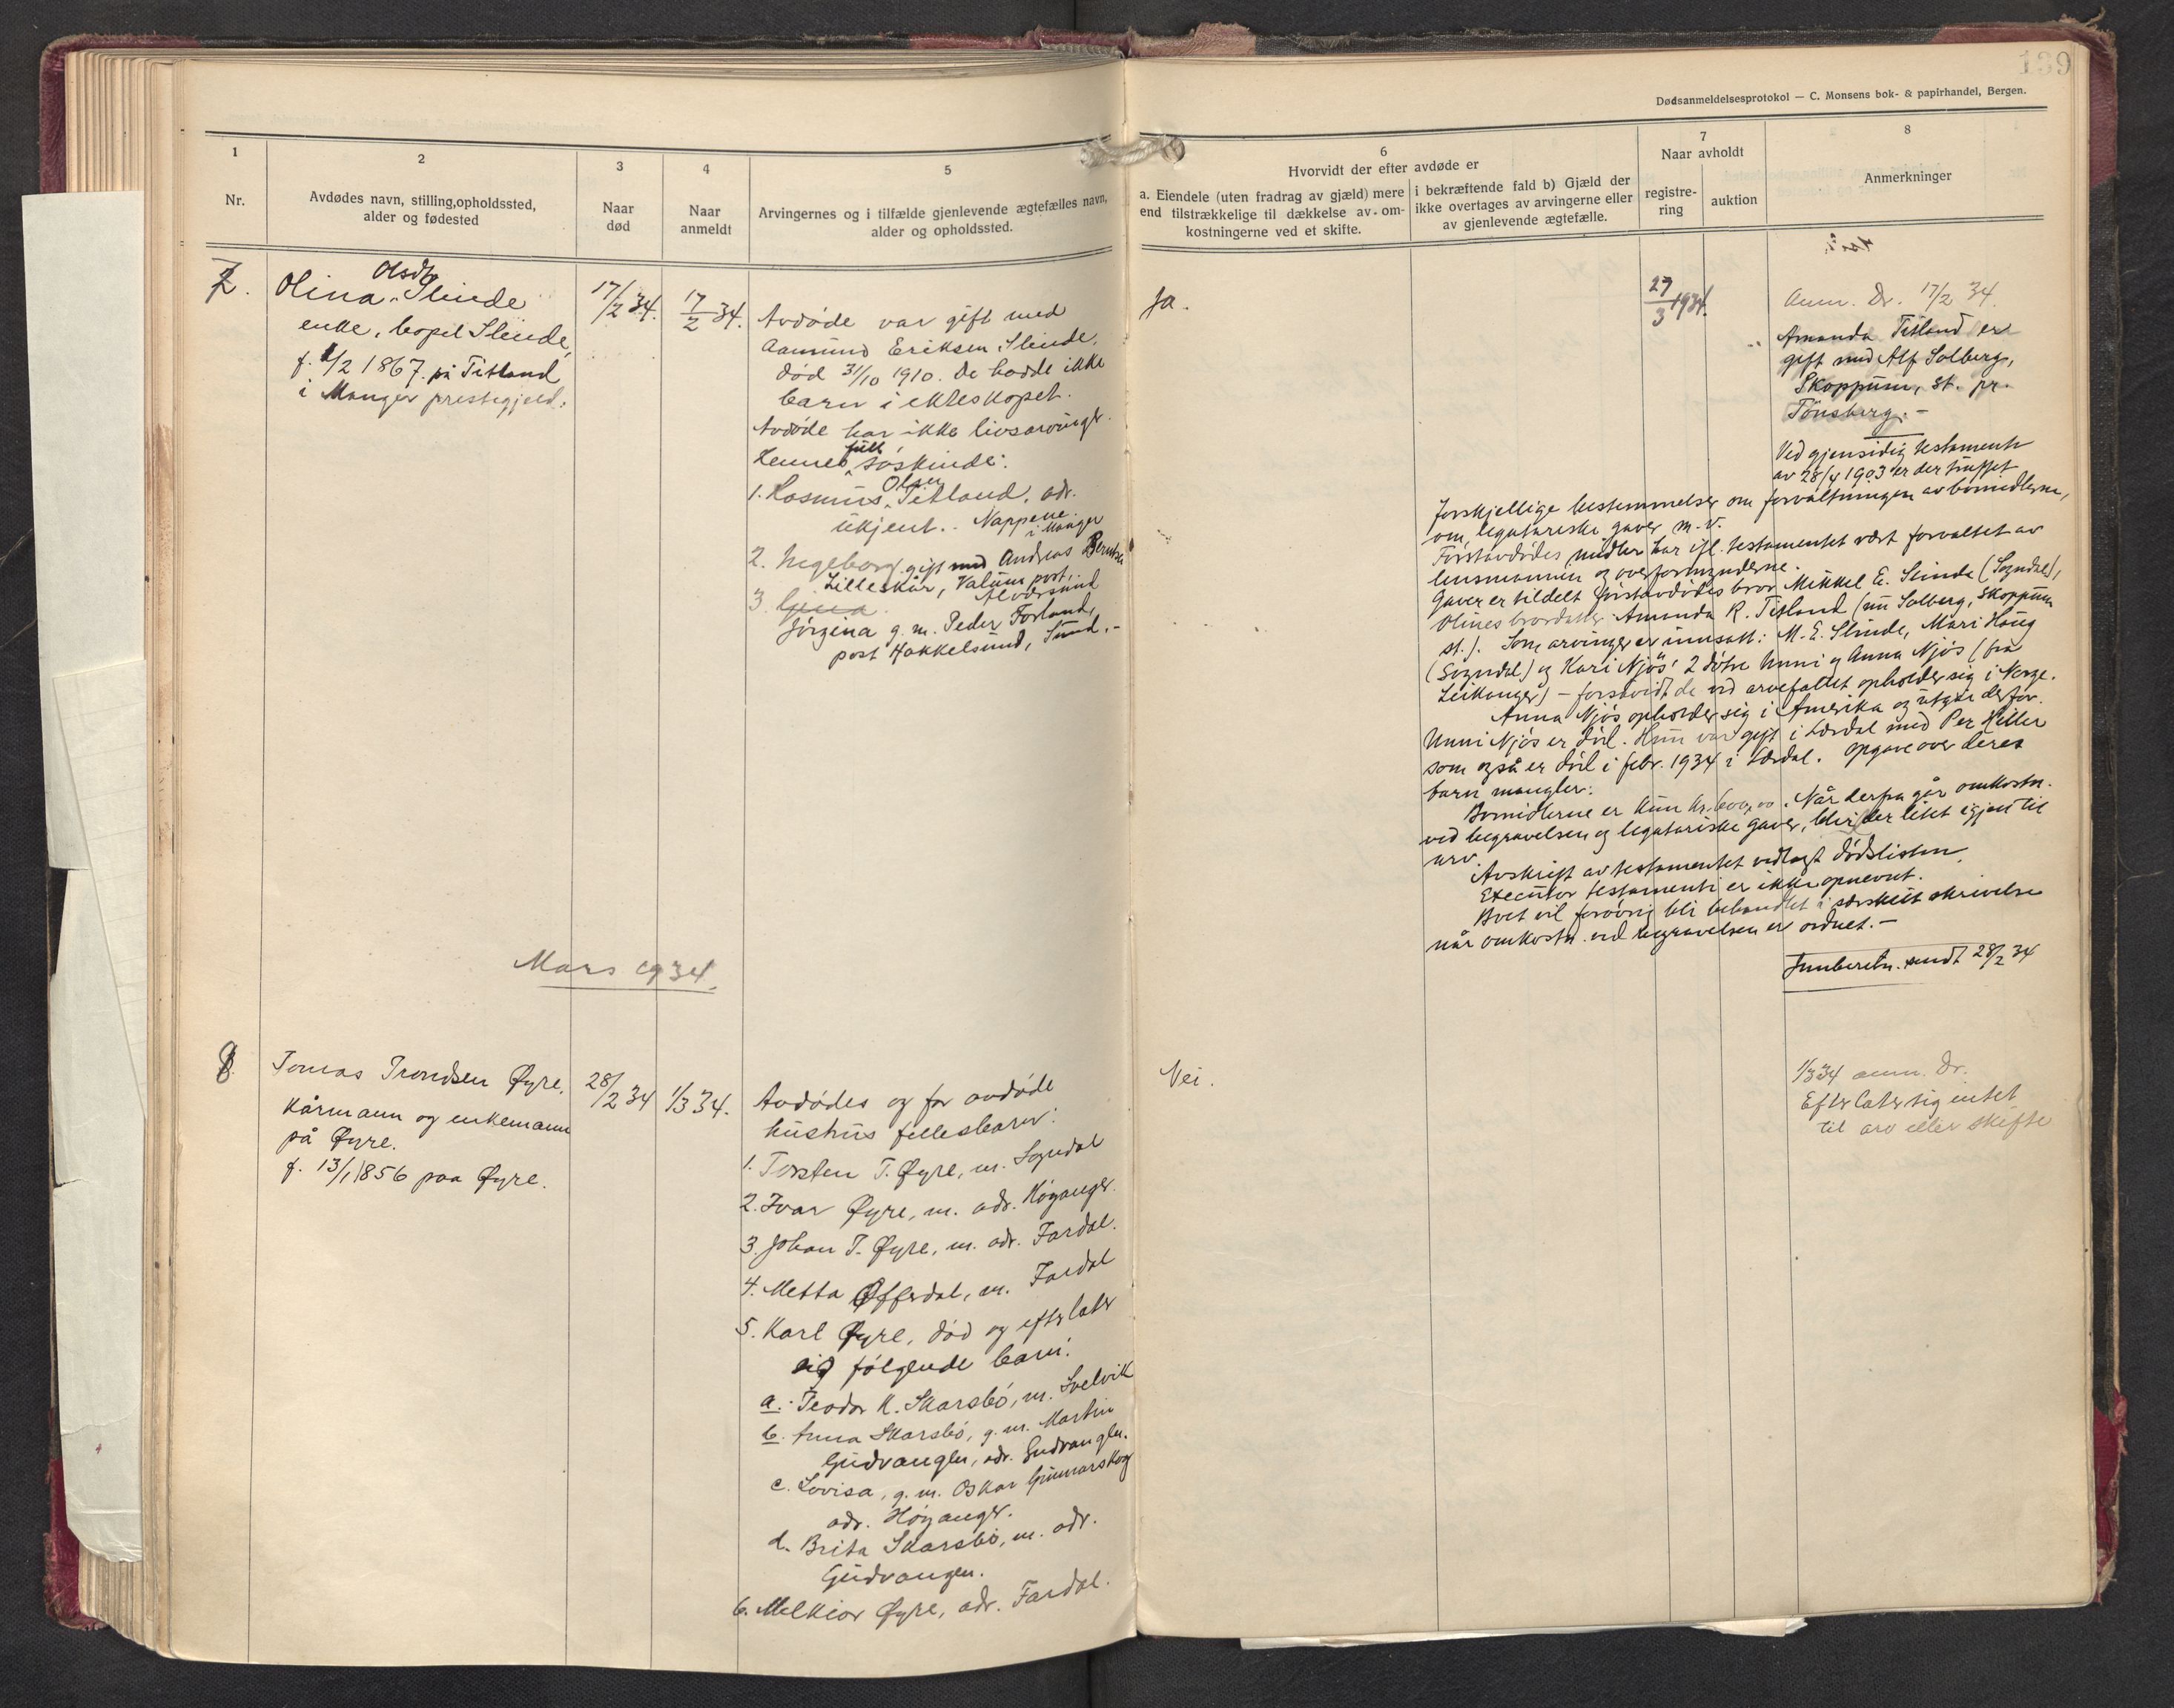 139
Dødsanmeldelsesprotokol — C. Monsens bok- & papirhandel, Bergen.
1
Nr.
2
Avdødes navn, stilling, opholdssted,
alder og fødested
3
Naar
død
4
Naar
anmeldt
5
Arvingernes og i tilfælde gjenlevende ægtefælles navn,
alder og opholdssted.
6
Hvorvidt der efter avdøde er
a. Eiendele (uten fradrag av gjæld) mere
end tilstrækkelige til dækkelse av om-
kostningerne ved et skifte.
i bekræftende fald b) Gjæld der
ikke overtages av arvingerne eller
av gjenlevende ægtefælle.
7
Naar avholdt
registre-
ring
auktion
8
Anmerkninger
7.
Olsdtr
Olina Slinde
enke, bopel Slinde,
f. 1/2 1867 på Titland
i Manger prestegjeld.
17/2 34.
17/2 34.
Avdøde var gift med
Aamund Eriksen Slinde,
død 31/10 1910. De hadde ikke
barn i ekteskapet.
Avdøde har ikke livsarvinger.
Hennes full søskende:
1. Rasmus Olsen Titland, adr.
ukjent. - Nappene
i Manger
2. Ingeborg gift med Andreas Berntsen
Lilleskår, Valum post,
Alversund
3. Gjina
Jørgina g. m. Peder Forland,
post Hakkelsund, Sund. -
Ja.
27/3 1934.
Anm. Dr. 17/2 34.
Amanda Titland er
gift med Alf Solberg,
Skoppum, st. pr.
Tønsberg. -
Ved gjensidig testamente
av 28/4 1903 er der truffet
forskjellige bestemmelser om forvaltningen av bomidlerne,
om legatariske gaver m.v.
Førstavdødes midler har ifl. testamentet vært forvaltet av
lensmannen og overformynderne.
Gaver er tildelt førstavdødes bror Mikkel E. Slinde (Sogndal),
Olines brordatter Amanda R. Titland (nu Solberg, Skoppum
st.). Som arvinger er innsatt: M. E. Slinde, Mari Haug
(Sogndal) og Kari Njøs' 2 døtre Unni og Anna Njøs (fra
Leikanger) - forsåvidt de ved arvefallet opholder sig i Norge.
Anna Njøs opholder sig i Amerika og utgår derfor.
Unni Njøs er død. Hun var gift i Lærdal med Per Hiller
som også er død i febr. 1934 i Lærdal. Opgave over deres
barn mangler.
Bomidlerne er kun kr. 600,00. Når derfra går omkostn.
ved begravelsen og legatariske gaver, blir der litet igjen til
arv.
Avskrift av testamentet vedlagt dødslisten.
Executor testamenti er ikke opnevnt.
Boet vil forøvrig bli behandlet i særskilt skrivelse
når omkostn. ved begravelsen er ordnet. -
Innberetn. sendt 28/2 34
Mars 1934.
8
Tomas Trondsen Øyre,
kårmann og enkemann
på Øyre.
f. 13/1 1856 paa Øyre.
28/2 34
1/3 34.
Avdødes og før avdøde
hustrus fellesbarn:
1. Torsten T. Øyre, m. Sogndal
2. Ivar Øyre, m. adr. Høyanger.
3. Johan T. Øyre, m. adr. Fardal.
4. Metta Øfferdal, m. Fardal
5. Karl Øyre, død og efterlater
sig følgende barn:
a. Teodor K. Skarsbø, m. Svelvik
b. Anna Skarsbø, g. m. Martin
Gudvangen, adr. Gudvangen.
c. Lovisa, g. m. Oskar Gunnarskog
adr. Høyanger.
d. Brita Skarsbø, m. adr.
Gudvangen.
6. Melkior Øyre, adr. Fardal.
Nei.
1/3 34 anm. Dr.
Efterlater sig intet
til arv eller skifte